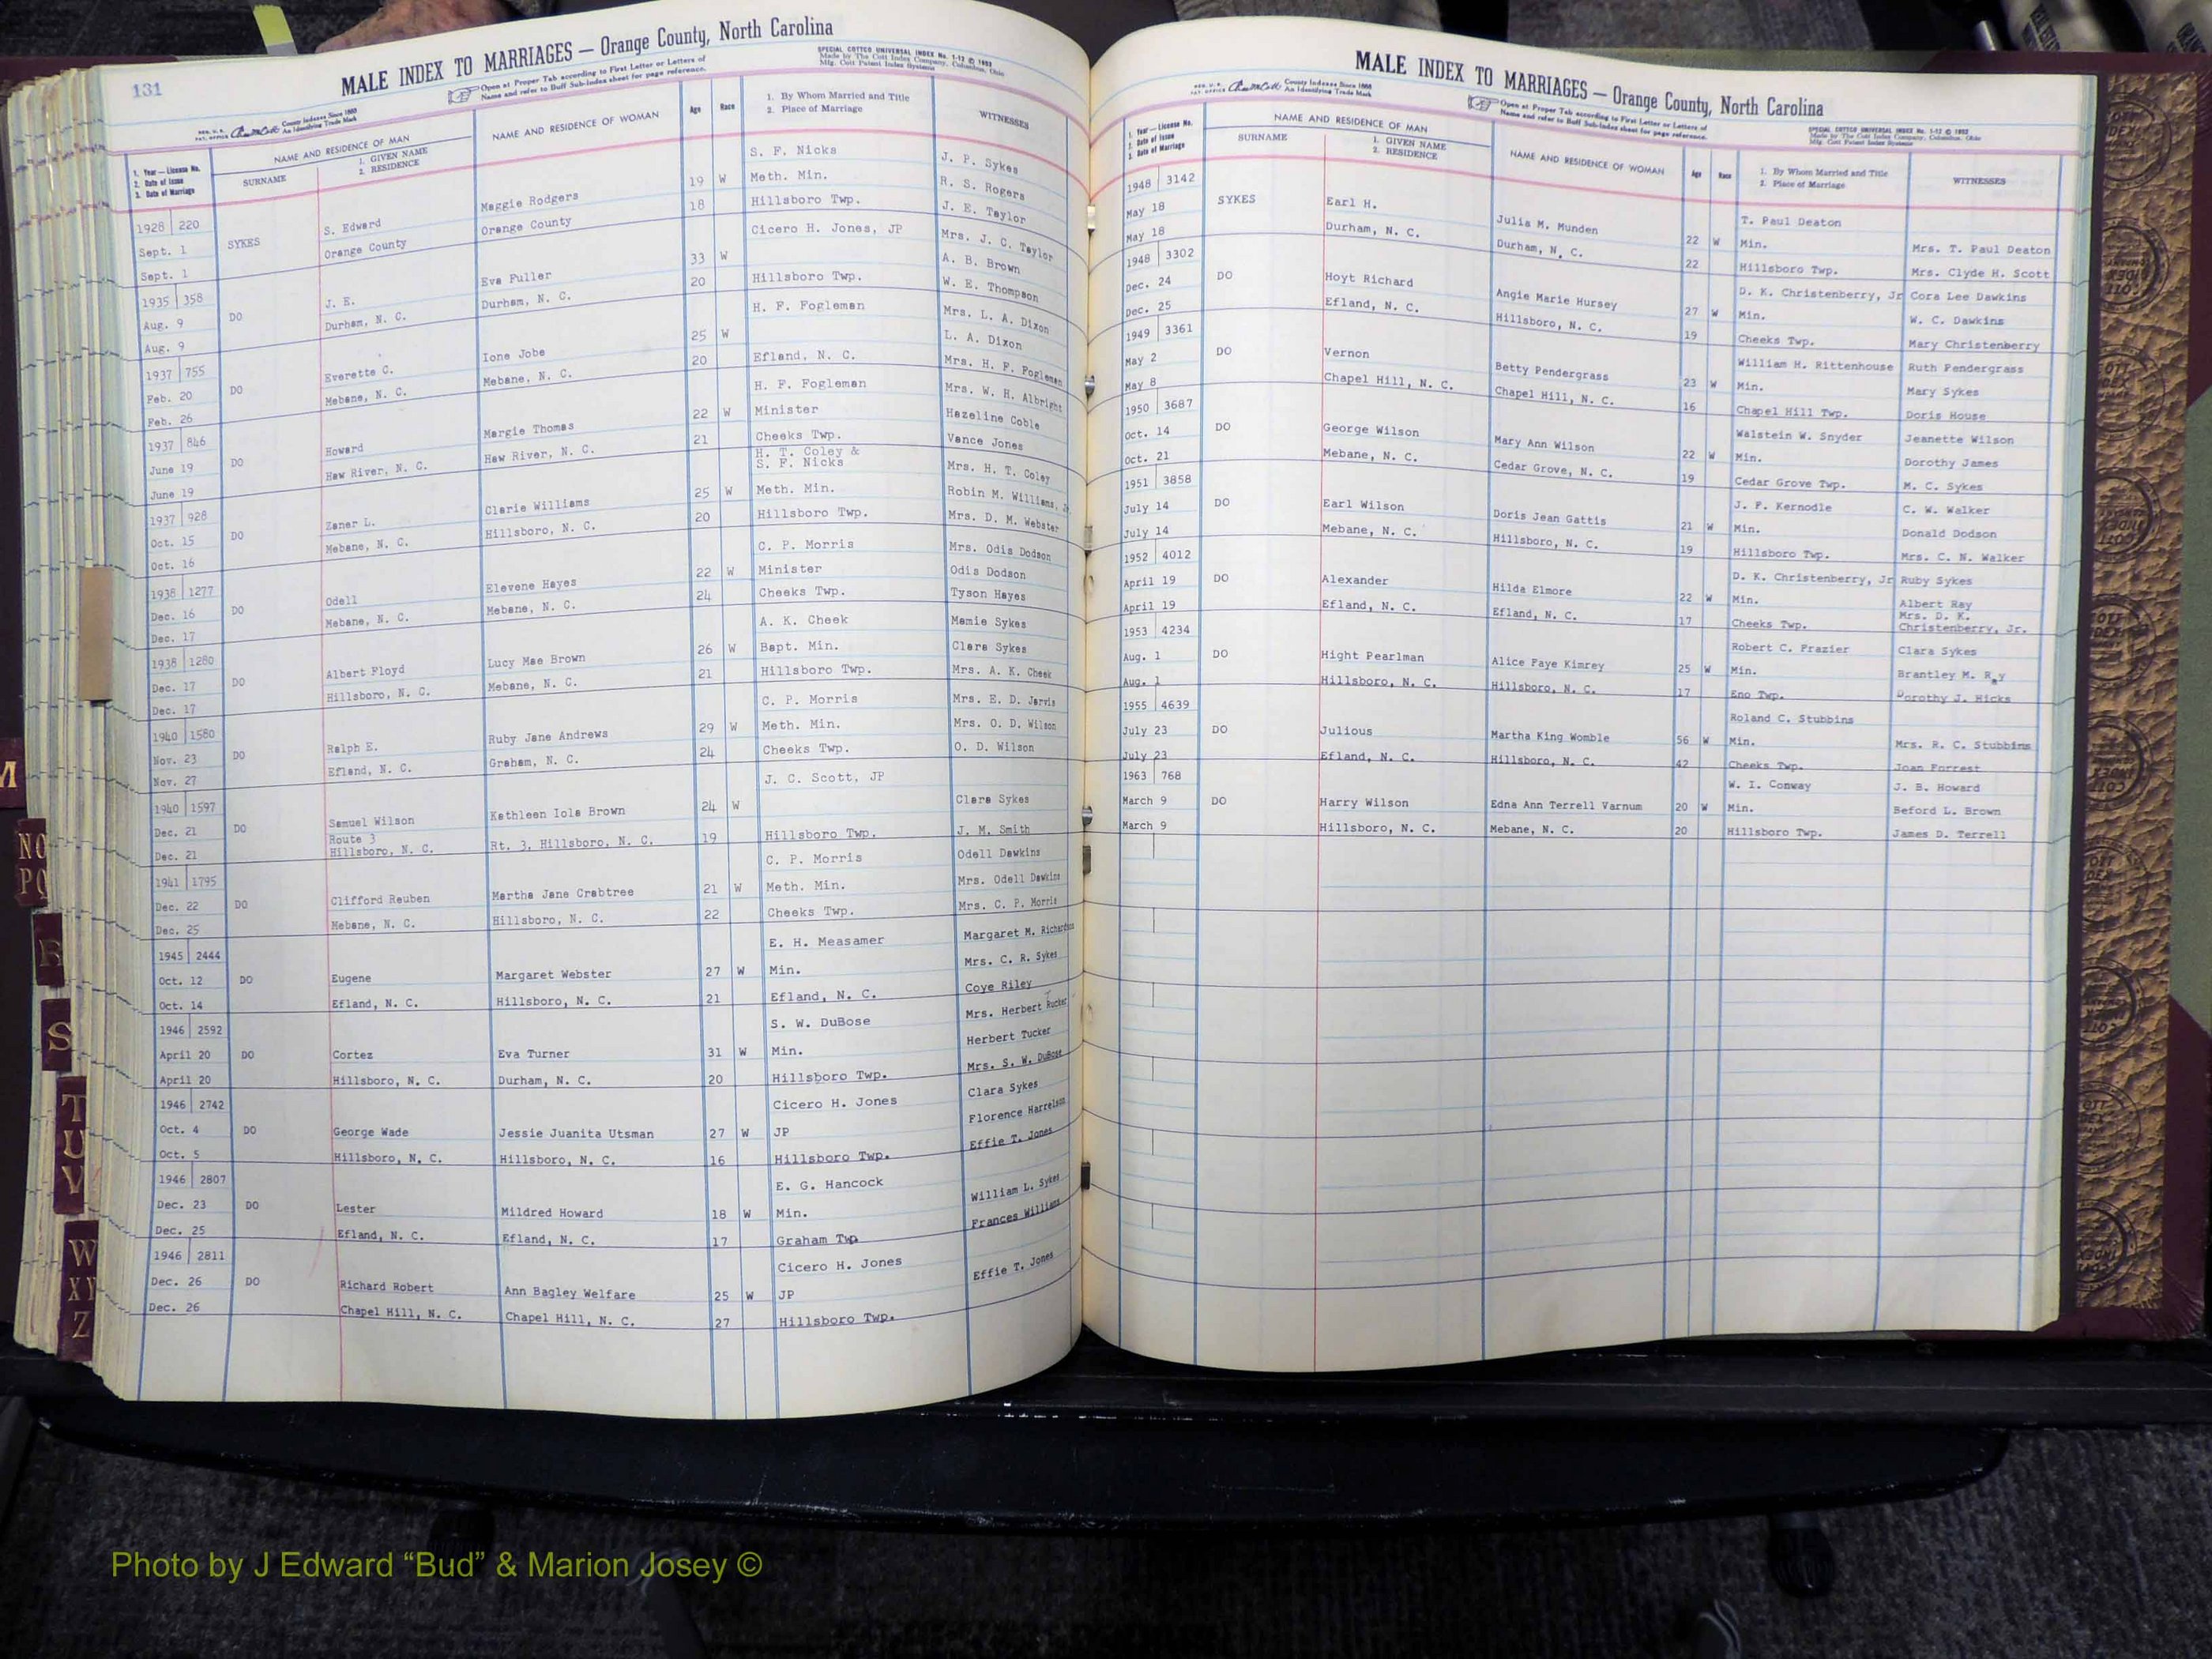 131
MALE INDEX TO MARRIAGES — Orange County, North Carolina
Open at Proper Tab according to First Letter or Letters of
Name and refer to Buff Sub-Index sheet for page reference.
SPECIAL COTTCO UNIVERSAL INDEX No. 1-12 © 1952
Made by The Cott Index Company, Columbus, Ohio
Mfg. Cott Patent Index Systems
County Indexes Since 1888
An Identifying Trade Mark
1. Year — License No.
2. Date of Issue
3. Date of Marriage
NAME AND RESIDENCE OF MAN
SURNAME
1. GIVEN NAME
2. RESIDENCE
NAME AND RESIDENCE OF WOMAN
Age
Race
1. By Whom Married and Title
2. Place of Marriage
WITNESSES
1928 220 S. F. Nicks J. P. Sykes
Sept. 1 SYKES S. Edward Maggie Rodgers 19 W Meth. Min. R. S. Rogers
Sept. 1 Orange County Orange County 18 Hillsboro Twp. J. E. Taylor
1935 358 Cicero H. Jones, JP Mrs. J. C. Taylor
Aug. 9 DO J. E. Eva Fuller 33 W A. B. Brown
Aug. 9 Durham, N. C. Durham, N. C. 20 Hillsboro Twp. W. E. Thompson
1937 755 H. F. Fogleman Mrs. L. A. Dixon
Feb. 20 DO Everette C. Ione Jobe 25 W L. A. Dixon
Feb. 26 Mebane, N. C. Mebane, N. C. 20 Efland, N. C. Mrs. H. F. Fogleman
1937 846 H. F. Fogleman Mrs. W. H. Albright
June 19 DO Howard Margie Thomas 22 W Minister Hazeline Coble
June 19 Haw River, N. C. Haw River, N. C. 21 Cheeks Twp. Vance Jones
1937 928 H. T. Coley & S. F. Nicks Mrs. H. T. Coley
Oct. 15 DO Zaner L. Clarie Williams 25 W Meth. Min. Robin M. Williams, Jr
Oct. 16 Mebane, N. C. Hillsboro, N. C. 20 Hillsboro Twp. Mrs. D. M. Webster
1938 1277 C. P. Morris Mrs. Odis Dodson
Dec. 16 DO Odell Elevene Hayes 22 W Minister Odis Dodson
Dec. 17 Mebane, N. C. Mebane, N. C. 24 Cheeks Twp. Tyson Hayes
1938 1280 A. K. Cheek Mamie Sykes
Dec. 17 DO Albert Floyd Lucy Mae Brown 26 W Bapt. Min. Clara Sykes
Dec. 17 Hillsboro, N. C. Mebane, N. C. 21 Hillsboro Twp. Mrs. A. K. Cheek
1940 1580 C. P. Morris Mrs. E. D. Jarvis
Nov. 23 DO Ralph E. Ruby Jane Andrews 29 W Meth. Min. Mrs. O. D. Wilson
Nov. 27 Efland, N. C. Graham, N. C. 24 Cheeks Twp. O. D. Wilson
1940 1597 J. C. Scott, JP
Dec. 21 DO Samuel Wilson Kathleen Iola Brown 24 W Clara Sykes
Dec. 21 Route 3 Hillsboro, N. C. Rt. 3, Hillsboro, N. C. 19 Hillsboro Twp. J. M. Smith
1941 1795 C. P. Morris Odell Dawkins
Dec. 22 DO Clifford Reuben Martha Jane Crabtree 21 W Meth. Min. Mrs. Odell Dawkins
Dec. 25 Mebane, N. C. Hillsboro, N. C. 22 Cheeks Twp. Mrs. C. P. Morris
1945 2444 E. H. Measamer Margaret M. Richardson
Oct. 12 DO Eugene Margaret Webster 27 W Min. Mrs. C. R. Sykes
Oct. 14 Efland, N. C. Hillsboro, N. C. 21 Efland, N. C. Coye Riley
1946 2592 S. W. DuBose Mrs. Herbert Rucker
April 20 DO Cortez Eva Turner 31 W Min. Herbert Tucker
April 20 Hillsboro, N. C. Durham, N. C. 20 Hillsboro Twp. Mrs. S. W. DuBose
1946 2742 Cicero H. Jones Clara Sykes
Oct. 4 DO George Wade Jessie Juanita Utsman 27 W JP Florence Harrelson
Oct. 5 Hillsboro, N. C. Hillsboro, N. C. 16 Hillsboro Twp. Effie T. Jones
1946 2807 E. G. Hancock William L. Sykes
Dec. 23 DO Lester Mildred Howard 18 W Min. Frances Williams
Dec. 25 Efland, N. C. Efland, N. C. 17 Graham Twp
1946 2811 Cicero H. Jones Effie T. Jones
Dec. 26 DO Richard Robert Ann Bagley Welfare 25 W JP
Dec. 26 Chapel Hill, N. C. Chapel Hill, N. C. 27 Hillsboro Twp.
MALE INDEX TO MARRIAGES — Orange County, North Carolina
County Indexes Since 1888
An Identifying Trade Mark
Open at Proper Tab according to First Letter or Letters of
Name and refer to Buff Sub-Index sheet for page reference.
SPECIAL COTTCO UNIVERSAL INDEX No. 1-12 © 1952
Made by The Cott Index Company, Columbus, Ohio
Mfg. Cott Patent Index Systems
1. Year — License No.
2. Date of Issue
3. Date of Marriage
NAME AND RESIDENCE OF MAN
SURNAME
1. GIVEN NAME
2. RESIDENCE
NAME AND RESIDENCE OF WOMAN
Age
Race
1. By Whom Married and Title
2. Place of Marriage
WITNESSES
1948 3142 T. Paul Deaton
May 18 SYKES Earl H. Julia M. Munden 22 W Min. Mrs. T. Paul Deaton
May 18 Durham, N. C. Durham, N. C. 22 Hillsboro Twp. Mrs. Clyde H. Scott
1948 3302 D. K. Christenberry, Jr Cora Lee Dawkins
Dec. 24 DO Hoyt Richard Angie Marie Hursey 27 W Min. W. C. Dawkins
Dec. 25 Efland, N. C. Hillsboro, N. C. 19 Cheeks Twp. Mary Christenberry
1949 3361 William H. Rittenhouse Ruth Pendergrass
May 2 DO Vernon Betty Pendergrass 23 W Min. Mary Sykes
May 8 Chapel Hill, N. C. Chapel Hill, N. C. 16 Chapel Hill Twp. Doris House
1950 3687 Walstein W. Snyder Jeanette Wilson
Oct. 14 DO George Wilson Mary Ann Wilson 22 W Min. Dorothy James
Oct. 21 Mebane, N. C. Cedar Grove, N. C. 19 Cedar Grove Twp. M. C. Sykes
1951 3858 J. F. Kernodle C. W. Walker
July 14 DO Earl Wilson Doris Jean Gattis 21 W Min. Donald Dodson
July 14 Mebane, N. C. Hillsboro, N. C. 19 Hillsboro Twp. Mrs. C. N. Walker
1952 4012 D. K. Christenberry, Jr Ruby Sykes
April 19 DO Alexander Hilda Elmore 22 W Min. Albert Ray
April 19 Efland, N. C. Efland, N. C. 17 Cheeks Twp. Mrs. D. K. Christenberry, Jr.
1953 4234 Robert C. Frazier Clara Sykes
Aug. 1 DO Hight Pearlman Alice Faye Kimrey 25 W Min. Brantley M. Ray
Aug. 1 Hillsboro, N. C. Hillsboro, N. C. 17 Eno Twp. Dorothy J. Hicks
1955 4639 Roland C. Stubbins
July 23 DO Julious Martha King Womble 56 W Min. Mrs. R. C. Stubbins
July 23 Efland, N. C. Hillsboro, N. C. 42 Cheeks Twp. Joan Forrest
1963 768 W. I. Conway J. B. Howard
March 9 DO Harry Wilson Edna Ann Terrell Varnum 20 W Min. Beford L. Brown
March 9 Hillsboro, N. C. Mebane, N. C. 20 Hillsboro Twp. James D. Terrell
M
NO
PQ
R
S
T
U
V
W
XY
Z
Photo by J Edward “Bud” & Marion Josey ©